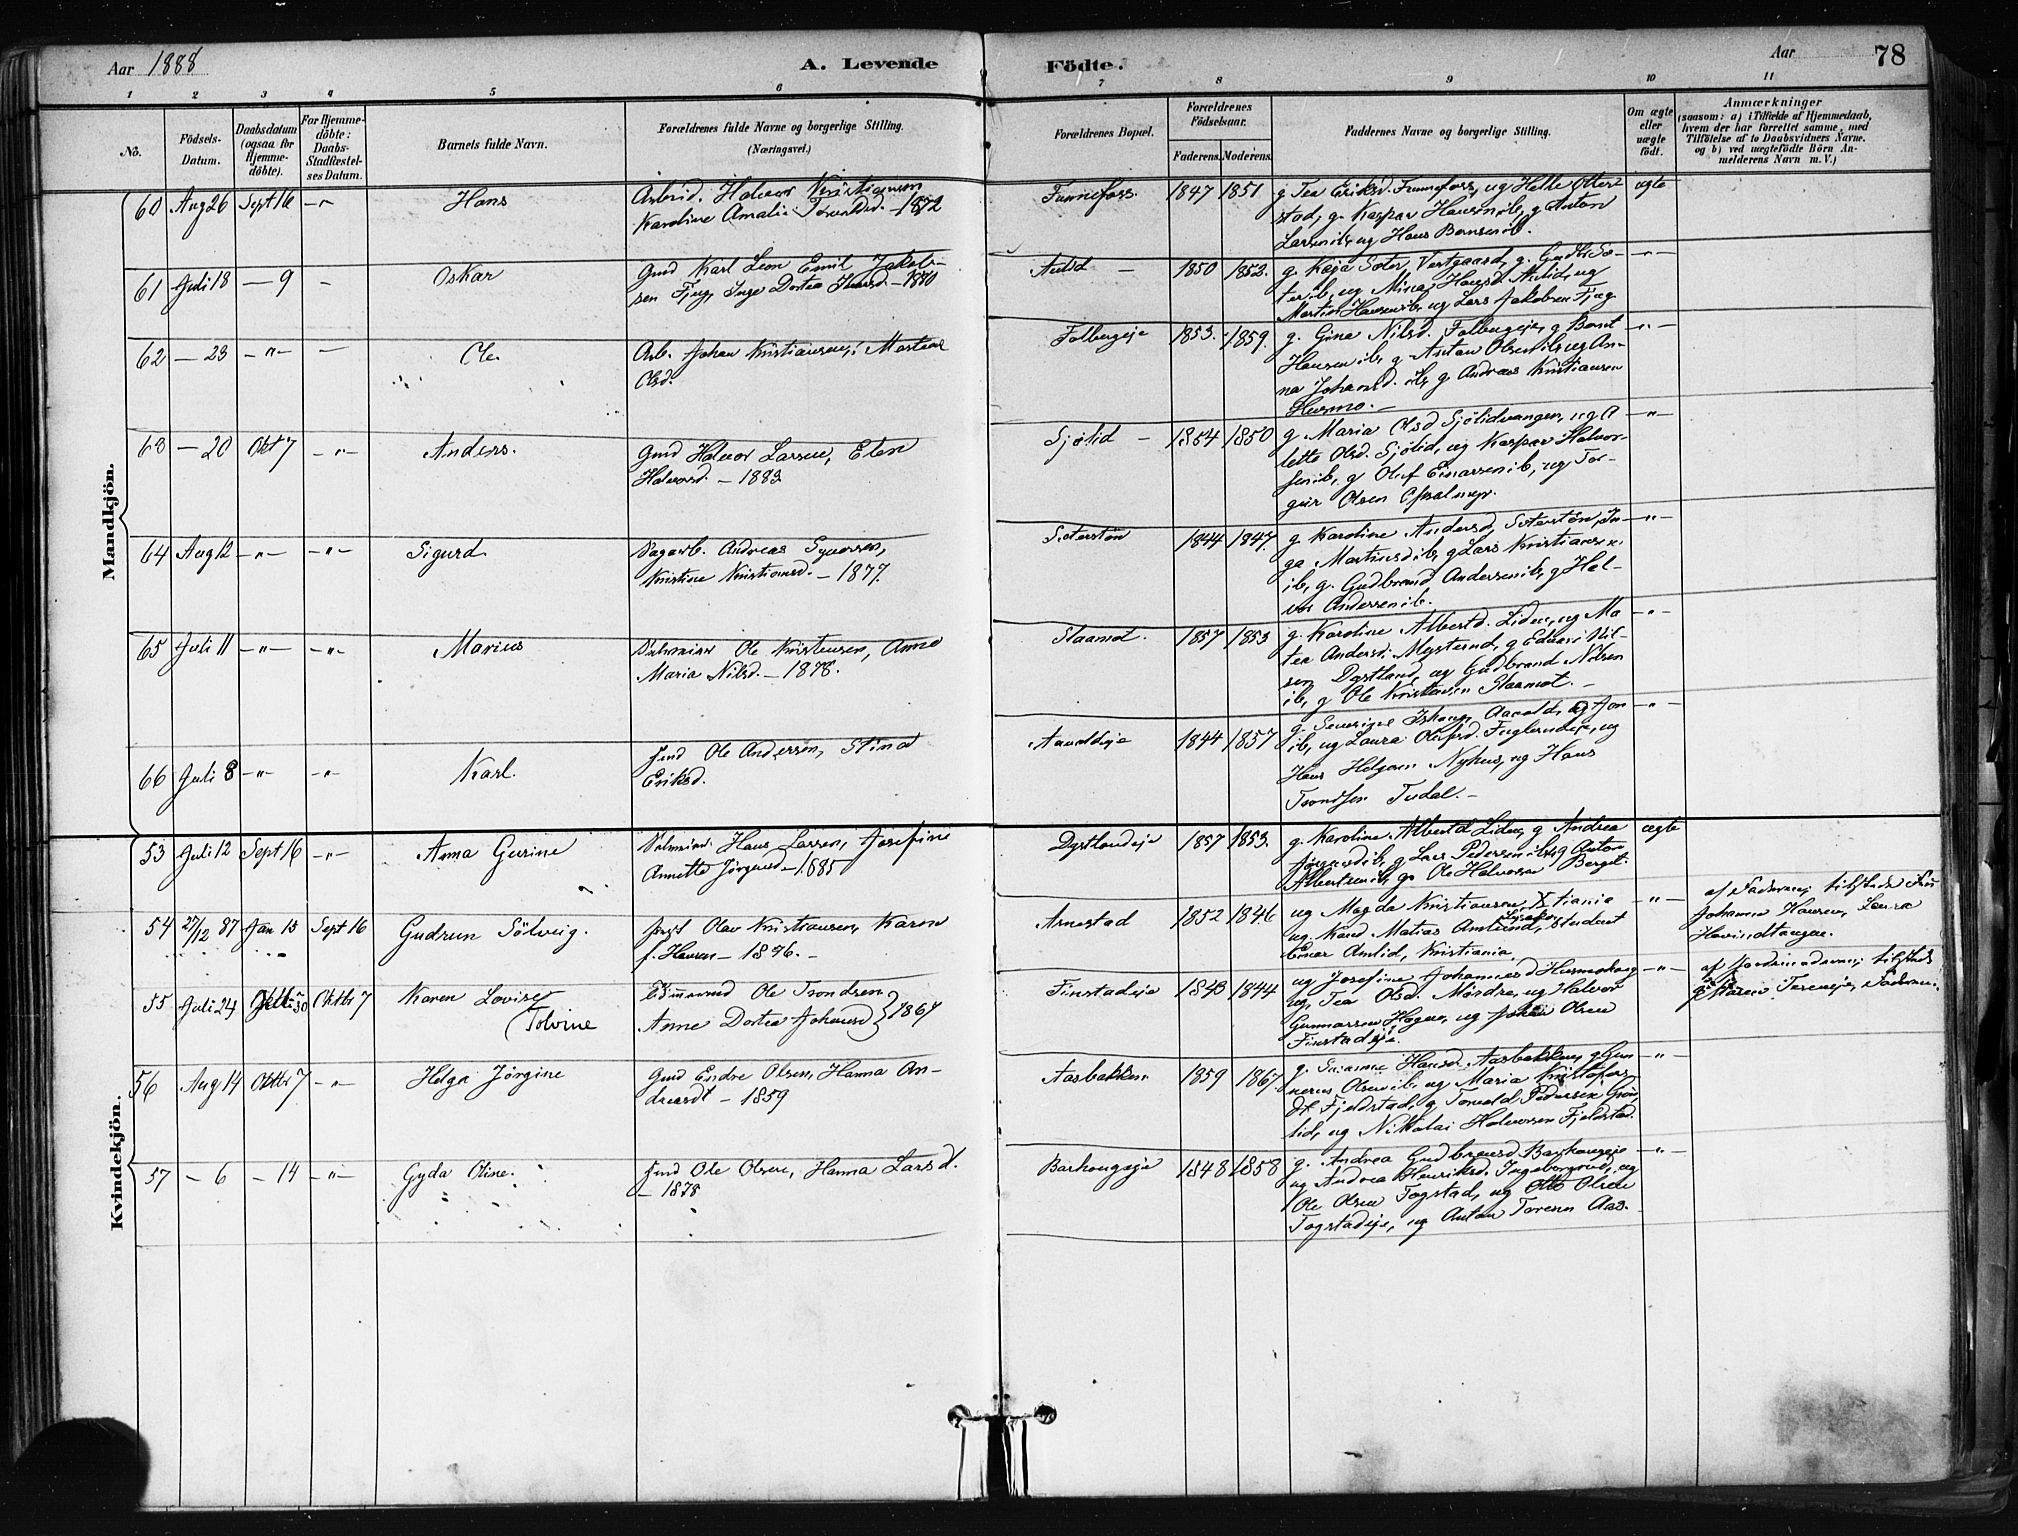 Aar 1888
A. Levende
Födte.
Aar
78
1 2 3 4 5 6 7 8 9 10 11
No.
Födsels-
Datum.
Daabsdatum
(ogsaa for
Hjemme-
döbte).
For Hjemme-
döbte:
Daabs-
Stadfæstel-
ses Datum.
Barnets fulde Navn.
Forældrenes fulde Navne og borgerlige Stilling.
(Næringsvei.)
Forældrenes Bopæl.
Forældrenes
Födselsaar.
Faderens. Moderens.
Faddernes Navne og borgerlige Stilling.
Om ægte
eller
uægte
født.
Anmærkninger
(saasom: a) i Tilfælde af Hjemmedaab,
hvem der har forrettet samme, med
Tilföielse af to Daabsvidners Navne.
og b) ved uægtefödte Börn An-
melderens Navn m. V.)
Mandkjön.
60 Aug 26 Sept 16 -"- Hans
Halvor Kristiansen
Karoline Amalie - 1872
Funnefoss. 1847 1851
g Tea Eriksd. Funnefoss, ug Helle Otter
stad, g. Kaspar Hansen ib, g Anton
Larsen ib, ug Hans Bernsen ib.
ægte
61 Juli 18 - 9 - Oskar
Gmd Karl Leon Emil Jakob-
sen Fjug, Inge Dortea - 1880
Aulid - 1850 1852.
g. Kaja Sæter Vestgaard, g.
ter ib, ug Mina Hansd. Aulid, ug
Martin Hansen ib, ug Lars Jakobsen Fjug
-"-
62 - 23 -"- - Ole
Arb. Johan Kristiansen,
Olsd.
1853. 1859.
g. Gina Nilsd. g Bernt
Hansen ib, g Anton Olsen ib, ug An-
na Johansd. ib, g Andreas Kristiansen
Husmo. -
-"-
63 - 20 Okt 7 -"- Anders.
Gmd Halvor Larsen, Elen
Halvorsd. - 1883
Sjölid - 1854 1850
g Maria Olsd Sjölidvangen, ug A
lette Olsd. Sjölid, ug Kaspar Halvor-
sen ib, g Oluf Einarsen ib, ug Tor-
geir Olsen
-"-
64 Aug 12 -"- -"- Sigurd
Dagarb. Andreas Syversen,
Kristine Kristiansd. - 1877.
Seterstön 1844 1847.
g Karoline Andersd. Seterstön, In-
ga Martinsd ib, g Lars Kristiansen
ib, g. Gudbrand Andersen ib, g Hal-
vor Andersen ib.
-"-
65 Juli 11 -"- -"- Marius
Ole Kristensen, Anne
Maria Nilsd. - 1878.
Slaamot. 1857 1853
g. Karoline Albertd. Liden, ug Ma
tea Andersd. Mysterud, g Edvard Nil-
sen Dystland, ug Gudbrand Nilsen
ib, g Ole Kristensen Slaamot. -
-"-
66 Juli 8 -"- -"- Karl.
Ole Andersen, Stina
Eriksd.
1844 1857
ib, ug Laura
Hans Helgesen Nyhus, ug Hans
Trondsen Tudal. -
-"-
Kvindekjön.
53 Juli 12 Sept 16 -"- Anna Gusine
Hans Larsen, Josefine
Annette Jörgensd - 1885
Dystlandeie 1857 1853.
g. Karoline Albertd Liden, g Andrea
Jörgensd ib, g Lars Pedersen ib, g Anton
Albertsen ib, g. Ole Halvorsen Berget.
ægte
54 27/12 87 Jan 15 Sept 16 Gudrun Sölveig.
Olav Kristiansen, Karen
f. Hansen - 1896. -
Arnestad 1852 1846
ug Magda Kristiansen, Xtiania
ug. Kand. Matias student
Einar Amlid, Kristiania
-"-
af tilstede
Johanne Hansen, Laura
55 Juli 24 Oktbr 7 Karen Lovise
(Tolvine
Ole Trondsen
Anne Dortea Johansd } 1867
Finstadeie 1843 1844
ug Josefine Johannesd
ug. Tea Olsd. Mördre, ug Halvor
Gunnarsen Hagen, ug Johan Olsen
Finstadeie.
-"-
af Jordmoderen, tilstede
56 Aug 14 Oktbr 7 -"- Helga Jörgine
Gmd Endre Olsen, Hanna An-
dreasd - 1859
Aasbakken 1859 1867.
g. Susanne Hansd. Aasbakken, g Gun
nerus Olsen ib, ug Maria Kristofers-
dt. Fjeldstad, g Torvald Pedersen Grön
lid, ug Nikolai Halvorsen Fjeldstad.
-"-
57 - 6 - 14 -"- Gyda Oline.
Ole Olsen, Hanna Larsd.
- 1878
Barhougeie 1848 1858
g. Andrea Gudbrandsd Barhougeie
ug Andrea Henriksd. Ingeborgrud, ug
Ole Olsen Togstad, ug Otto Olsen
Togstadeie, ug Anton Toresen Aas.
-"-